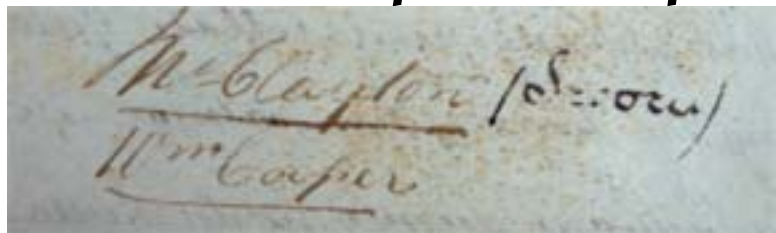 Mr Clayton (Sworn)
Wm Caper